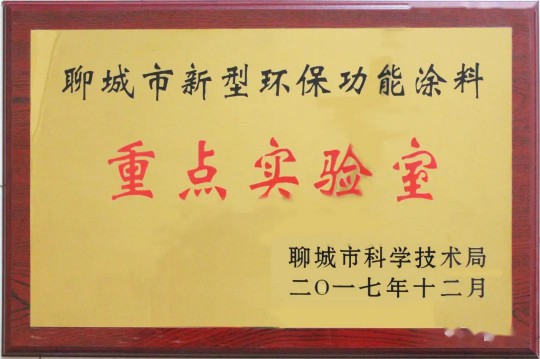 聊城市新型环保功能涂料
重点实验室
聊城市科学技术局
二〇一七年十二月